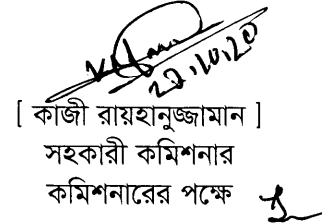 ২০.১০.২০
[ কাজী রায়হানুজ্জামান ]
সহকারী কমিশনার
কমিশনারের পক্ষে